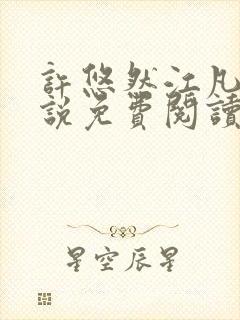 許悠然江凡
說免費閱讀
星空辰星